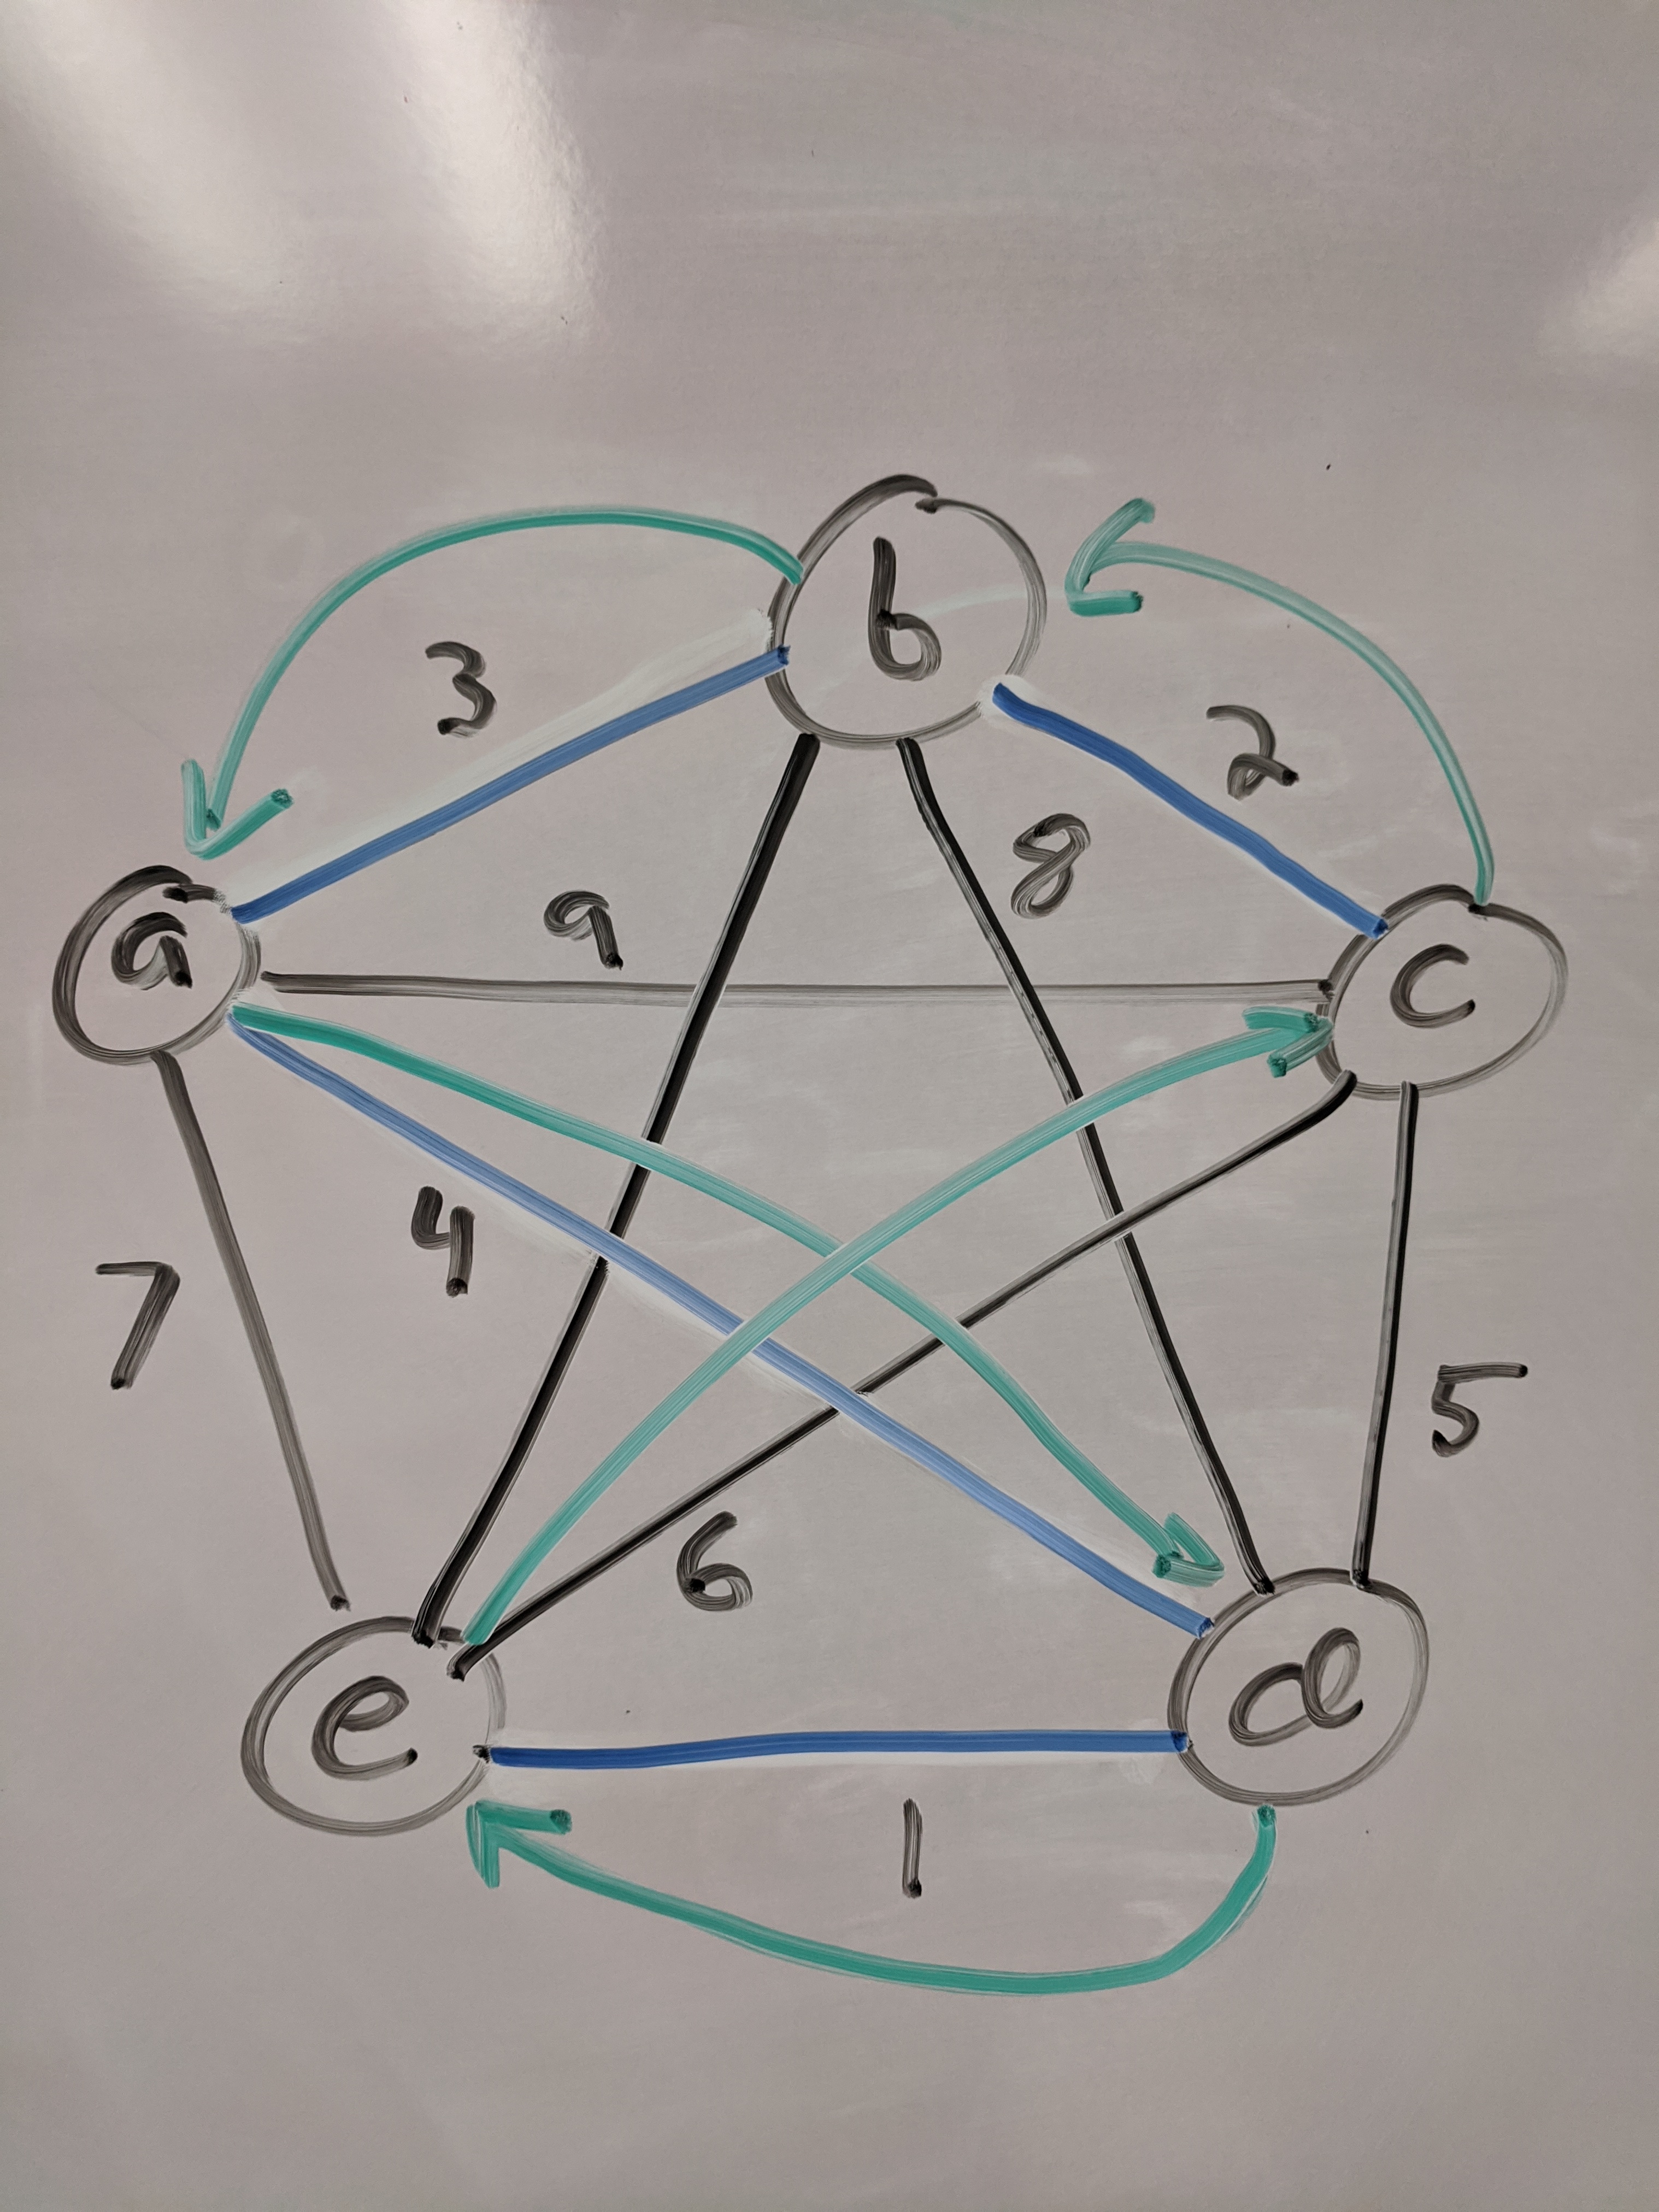 b
3
2
8
9
a
c
4
7
5
6
e
d
1